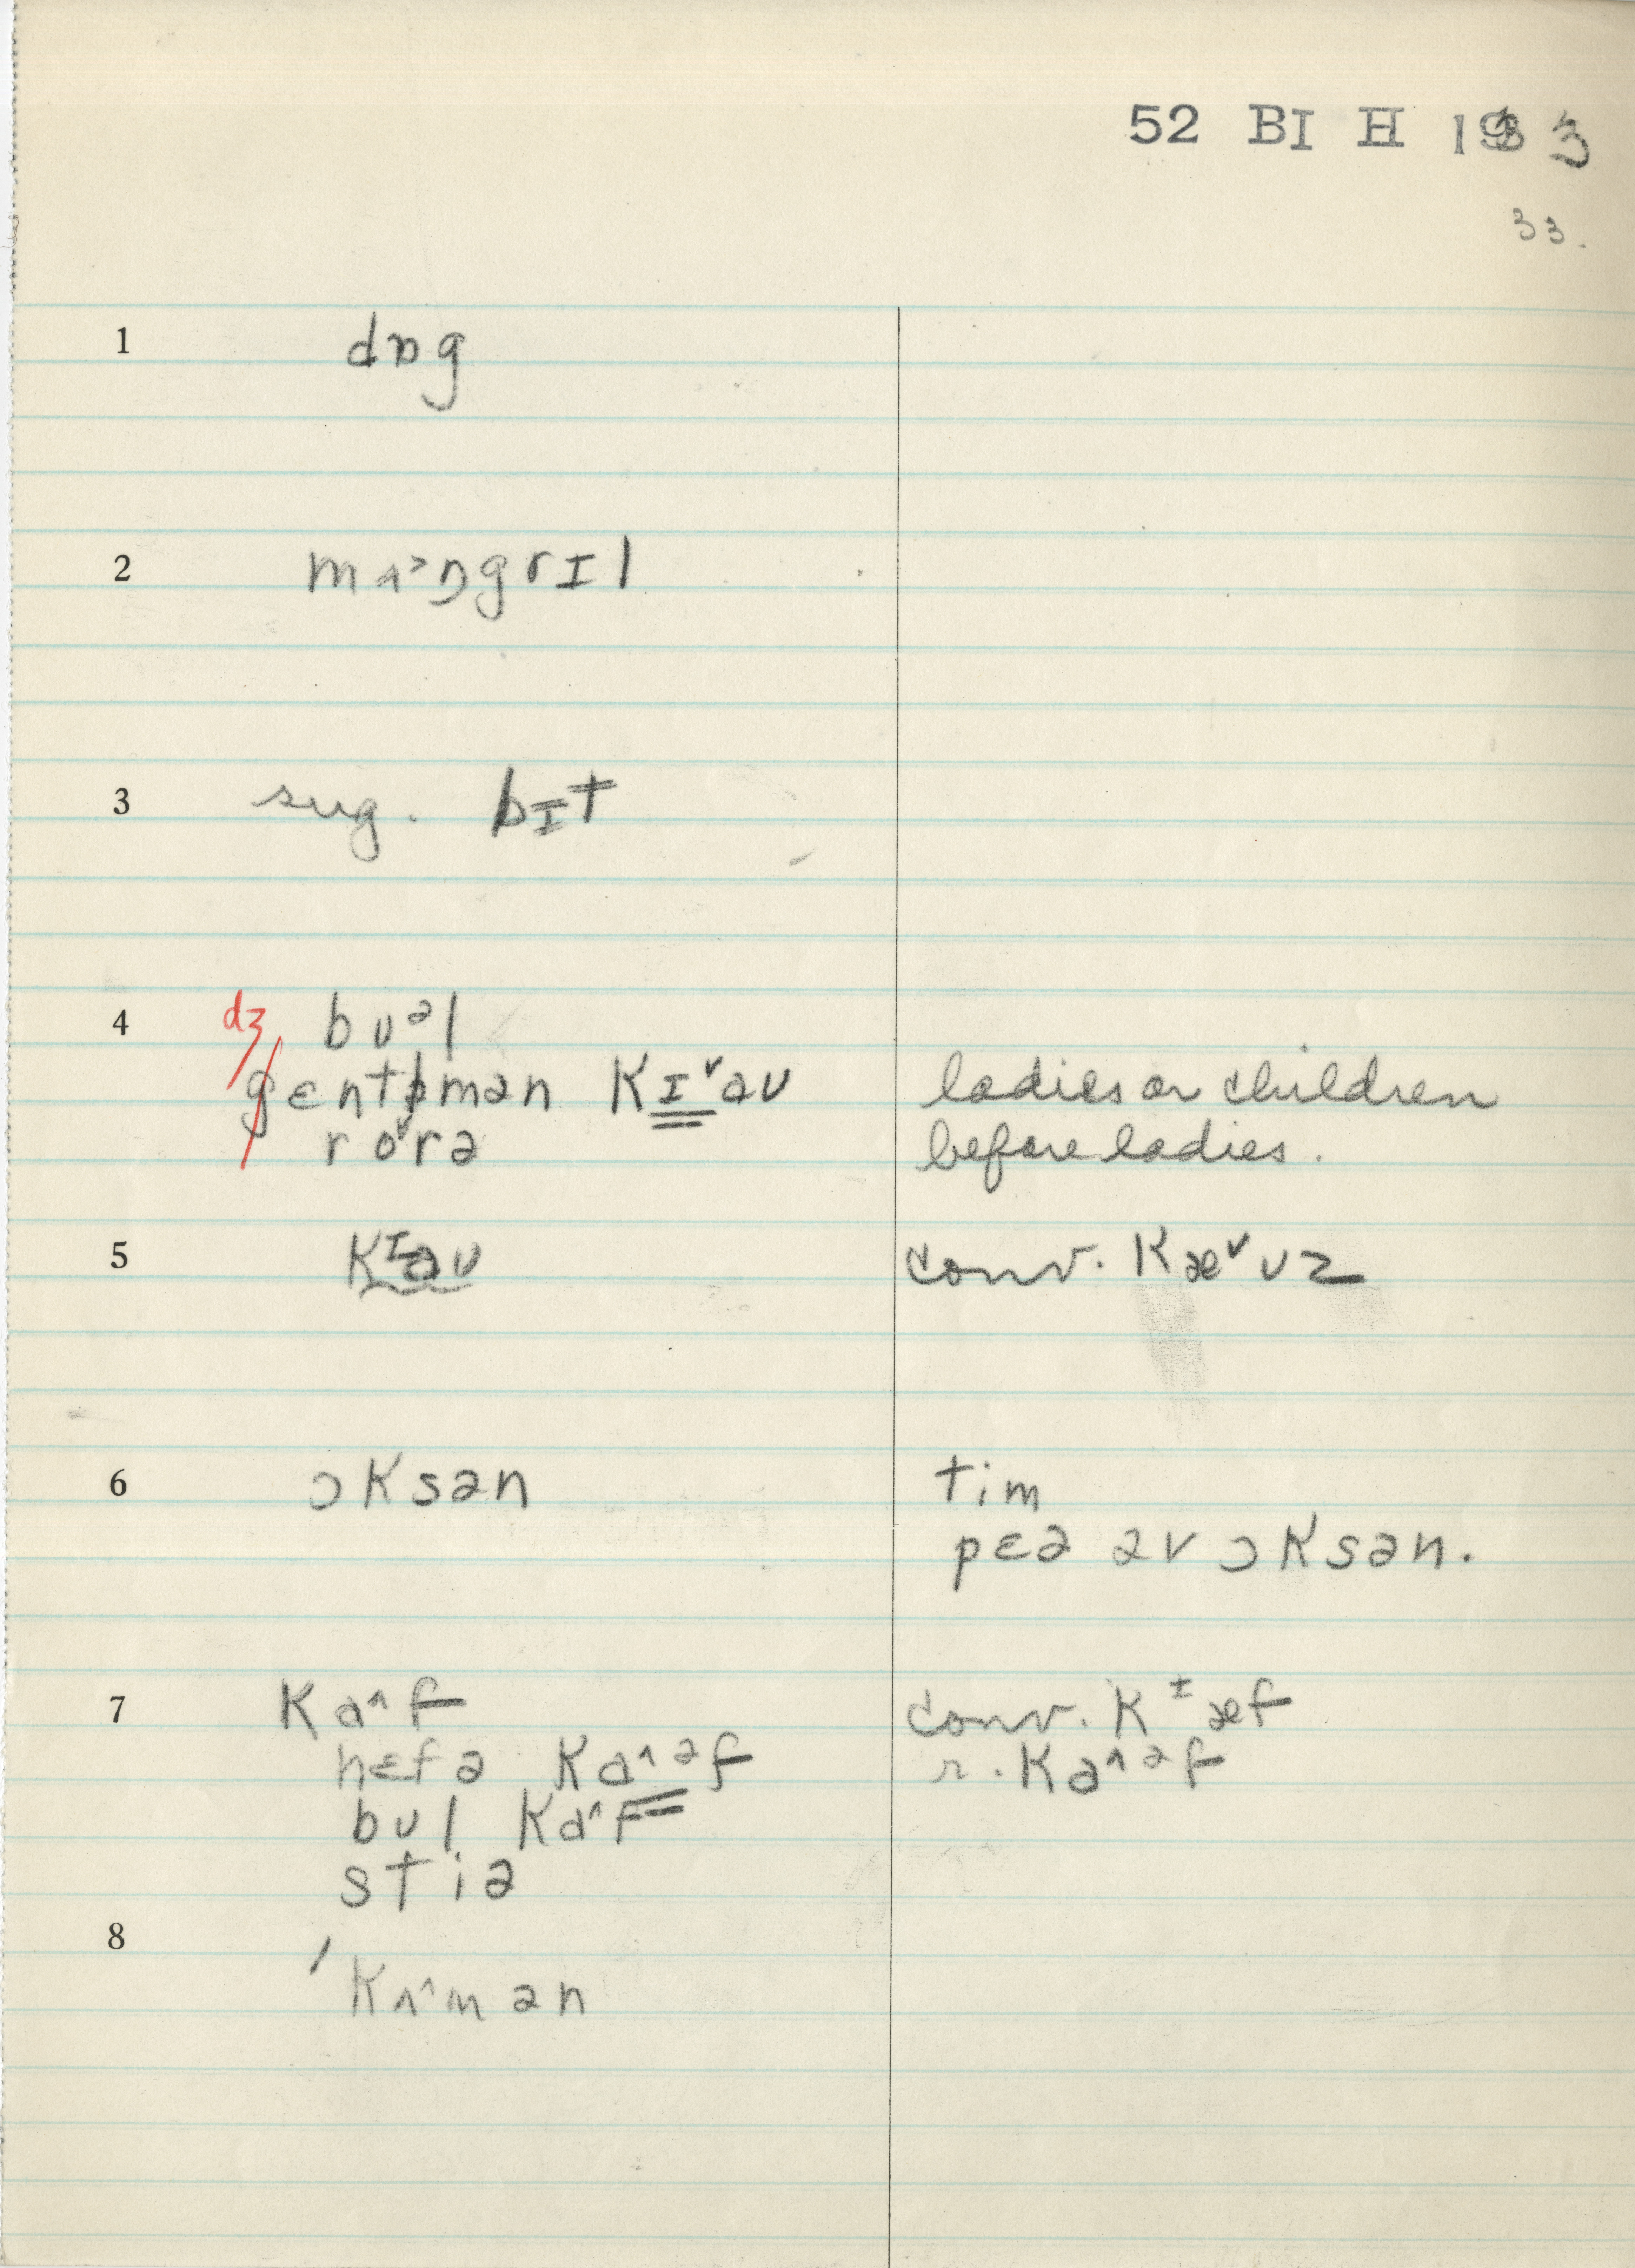 52 BI H 1933
33.
1 dɒg
2 mʌ˃ŋgrɪl
3 sug. bɪt
4 dʒ bʊᵊl
gɛntlmən kɪ˅aʊ ladies or children
ro˅rə before ladies.
5 kᶦaʊ conv. kæ˅ʊz
6 ɔksən tim
pɛə əv ɔksən.
7 ka^f conv. kᶦæf
hɛfə ka^ᵊf r. ka^ᵊf
bʊl ka^f
stiə
8
'kʌ^mən